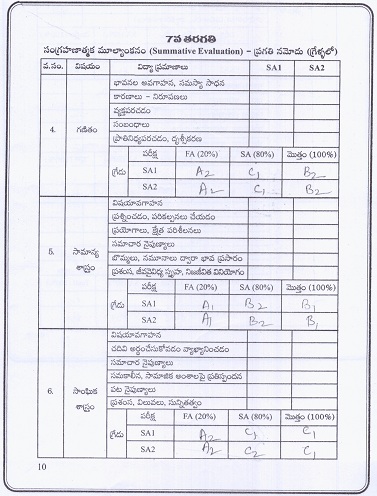 7వ తరగతి
సంగ్రహణాత్మక మూల్యాంకనం (Summative Evaluation) – ప్రగతి నమోదు (గ్రేళ్ళలో)
వ.సం. విషయం విద్యా ప్రమాణాలు SA1 SA2
భావనల అవగాహన, సమస్యా సాధన
కారణాలు – నిరూపణలు
వ్యక్తపరచడం
సంబంధాలు
ప్రాతినిధ్యపరచడం, దృశ్యీకరణ
4. గణితం
గ్రేడు పరీక్ష FA (20%) SA (80%) మొత్తం (100%)
SA1 A2 C1 B2
SA2 A2 C1 B2
విషయావగాహన
ప్రశ్నించడం, పరికల్పనలు చేయడం
ప్రయోగాలు, క్షేత్ర పరిశీలనలు
సమాచార నైపుణ్యాలు
బొమ్మలు, నమూనాల ద్వారా భావ ప్రసారం
ప్రశంస, జీవవైవిధ్య స్పృహ, నిజజీవిత వినియోగం
5. సామాన్య శాస్త్రం
గ్రేడు పరీక్ష FA (20%) SA (80%) మొత్తం (100%)
SA1 A1 B2 B1
SA2 A1 B2 B1
విషయావగాహన
చదివి అర్థంచేసుకోవడం వ్యాఖ్యానించడం
సమాచార నైపుణ్యాలు
సమకాలీన, సామాజిక అంశాలపై ప్రతిస్పందన
పట నైపుణ్యాలు
ప్రశంస, విలువలు, సున్నితత్వం
6. సాంఘిక శాస్త్రం
గ్రేడు పరీక్ష FA (20%) SA (80%) మొత్తం (100%)
SA1 A2 C1 C1
SA2 A2 C2 C1
10